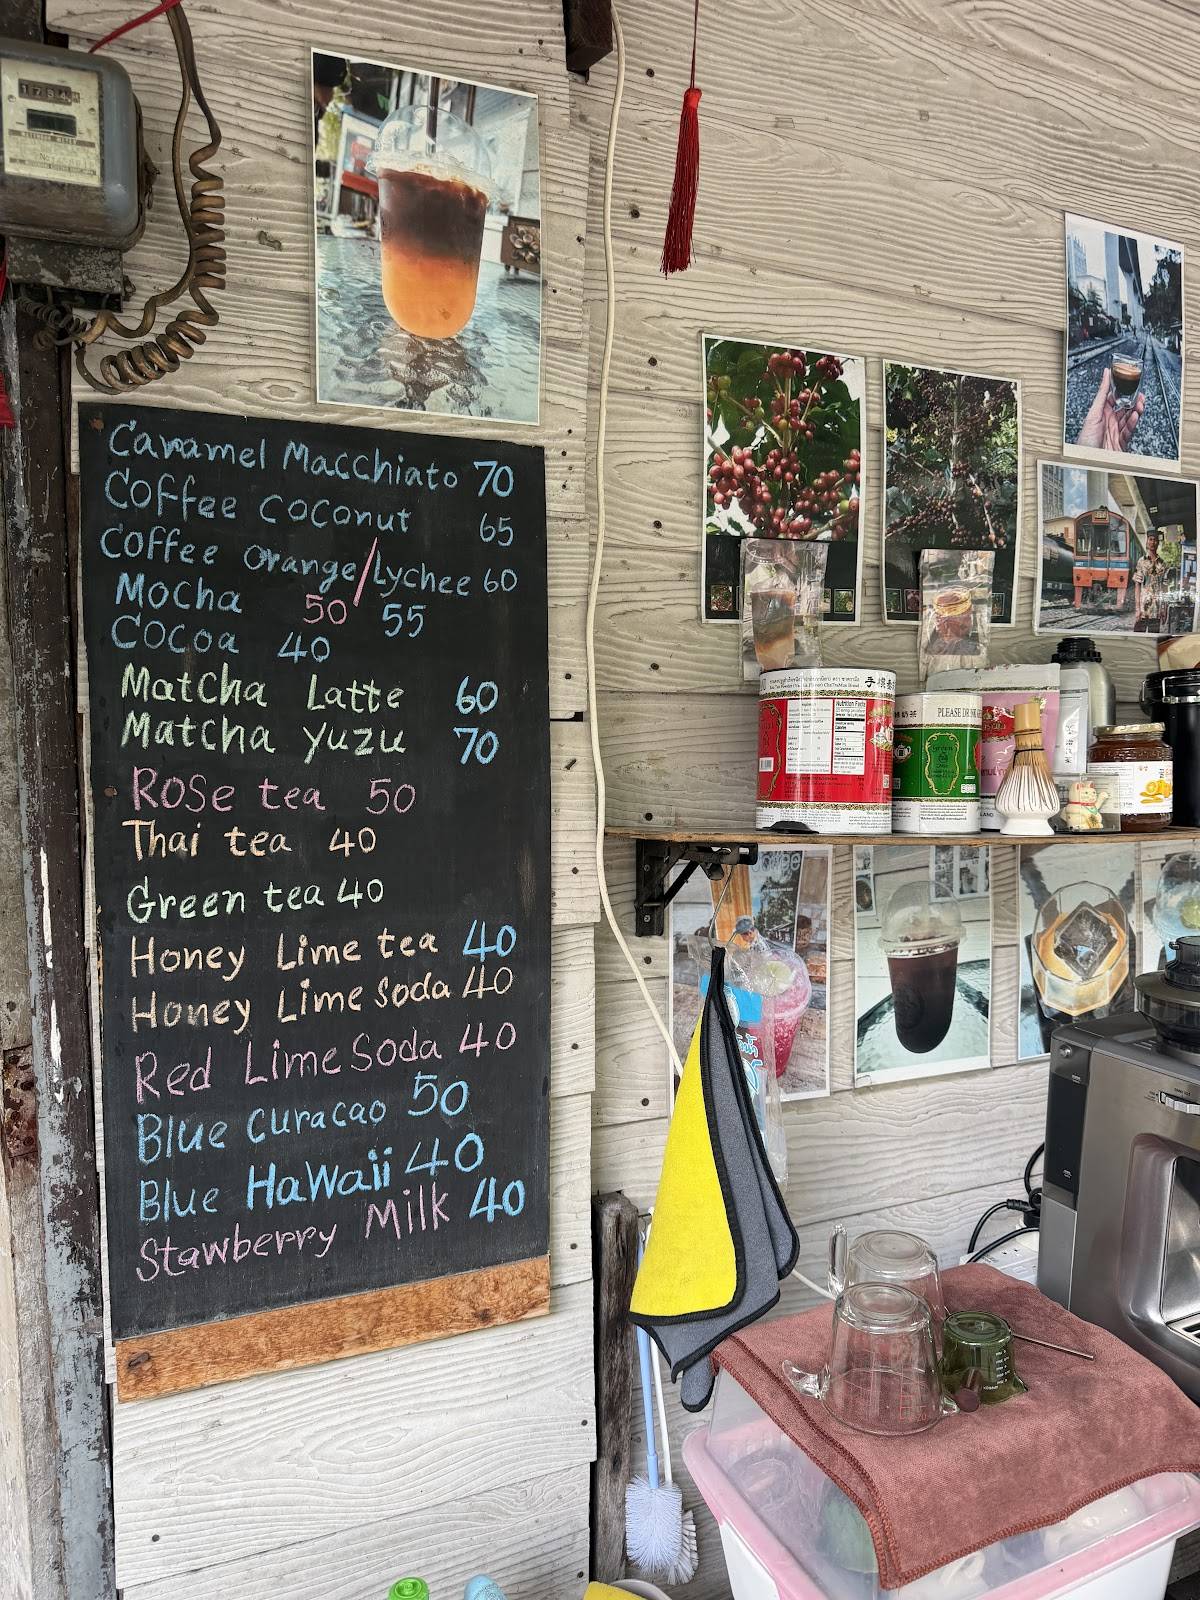 Caramel Macchiato 70
Coffee coconut 65
Coffee orange/Lychee 60
Mocha 50 55
Cocoa 40
Matcha Latte 60
Matcha yuzu 70
Rose tea 50
Thai tea 40
Green tea 40
Honey Lime tea 40
Honey Lime soda 40
Red Lime Soda 40
Blue Curacao 50
Blue Hawaii 40
Stawberry Milk 40
Nutrition Facts
PLEASE DRINK